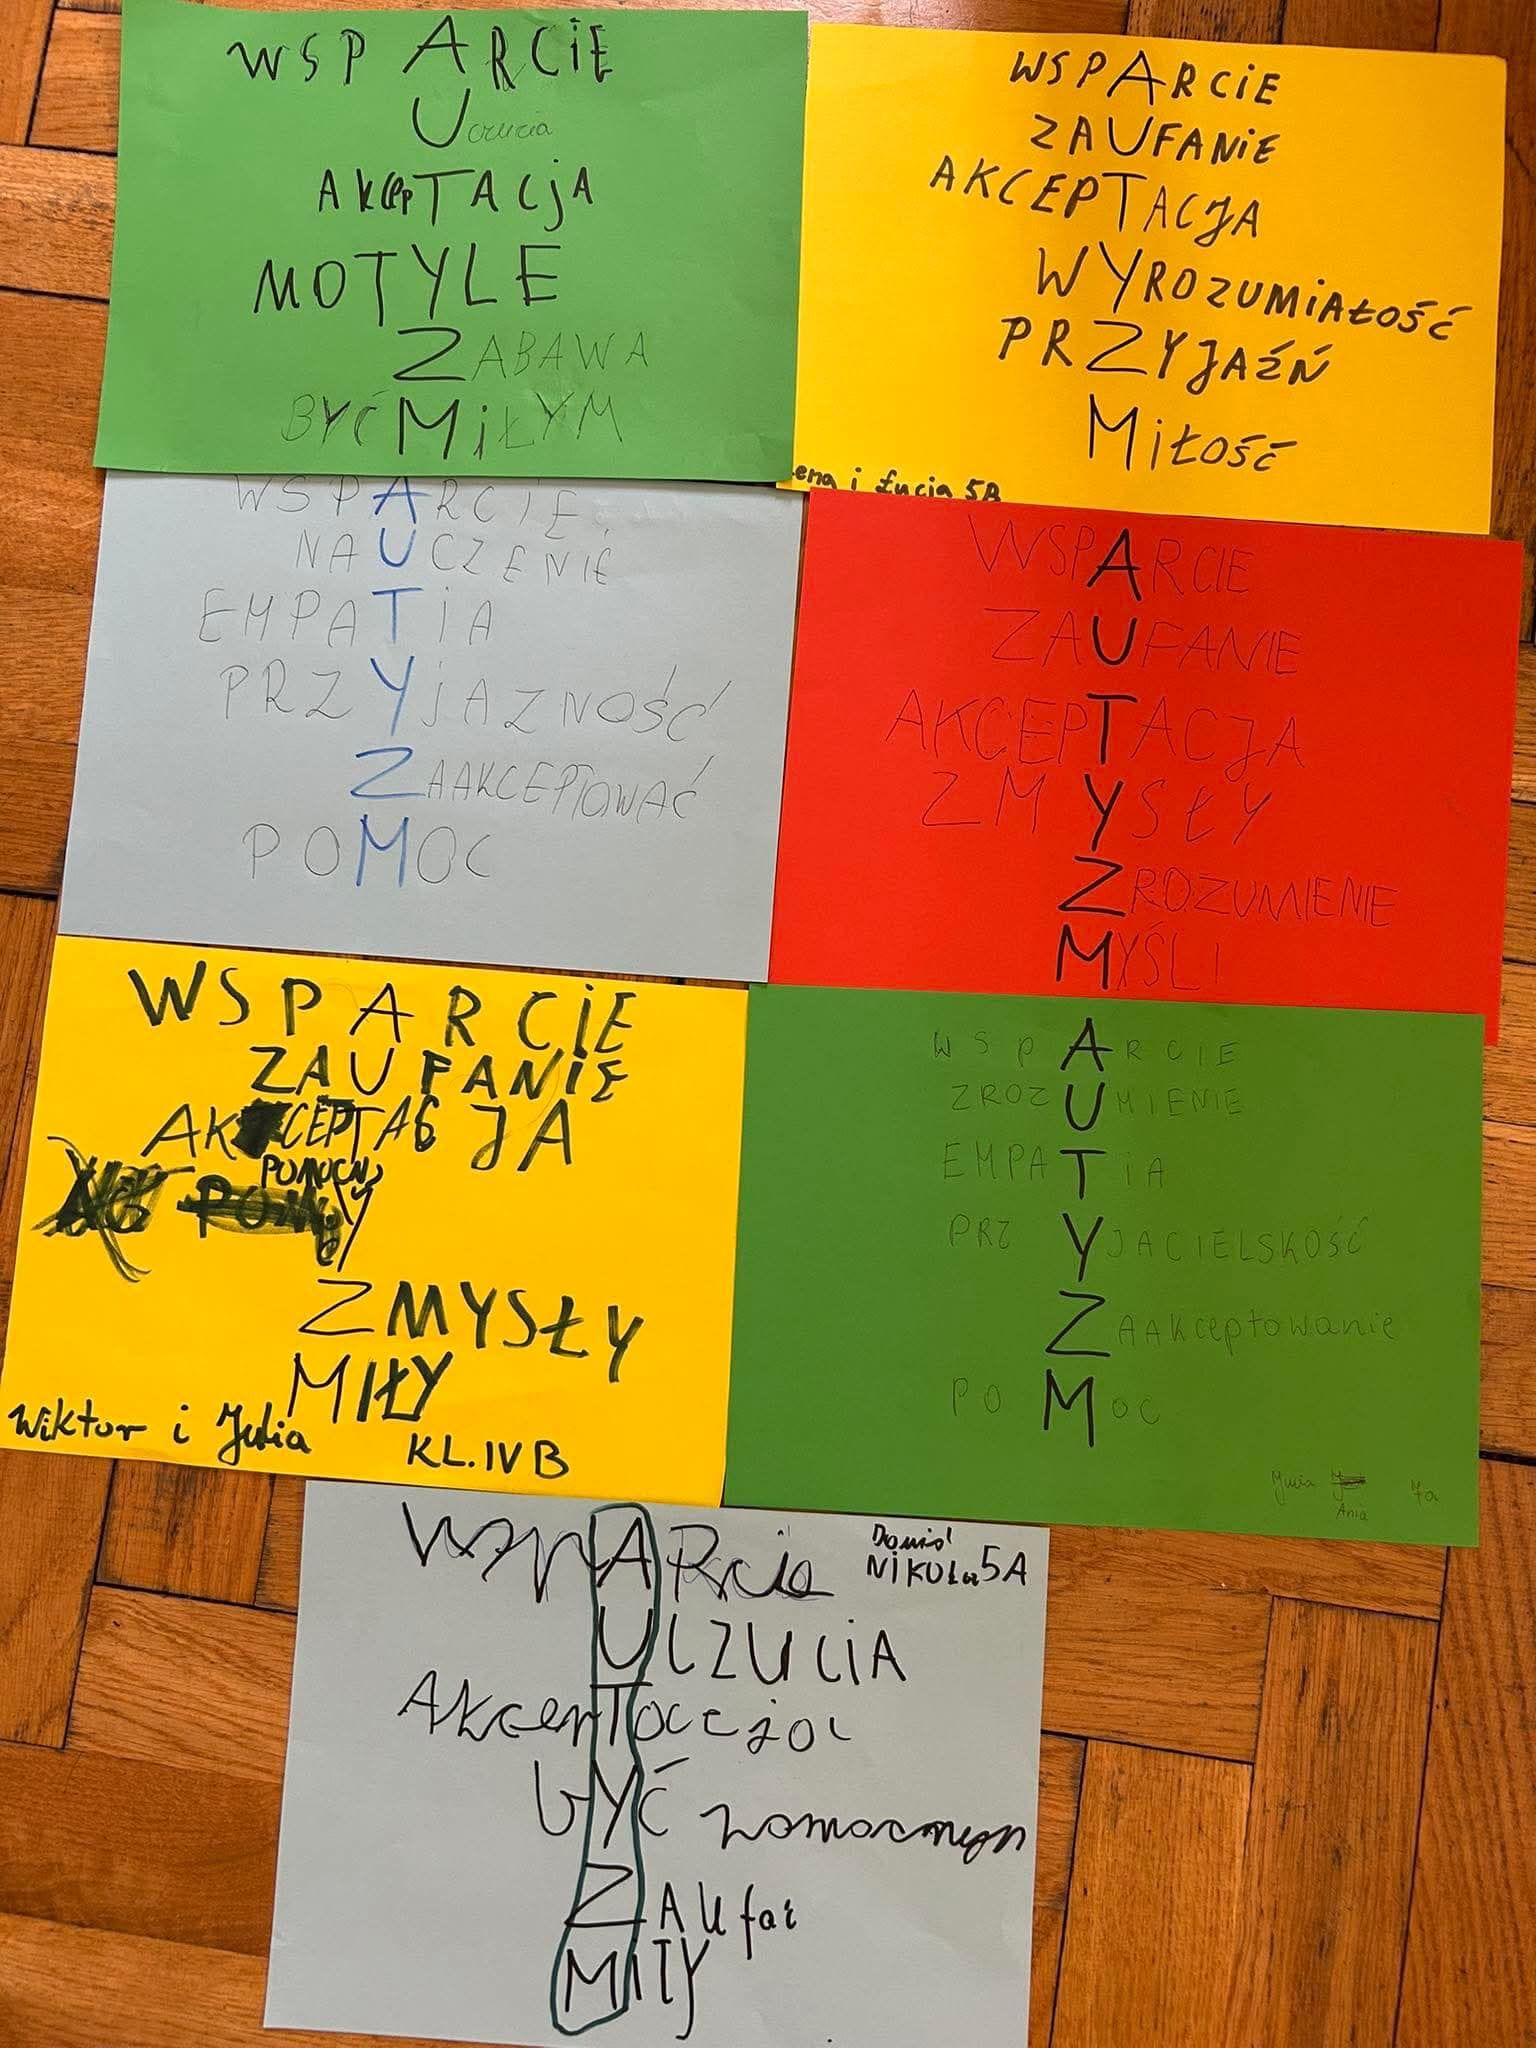 WSPARCIE
AKCEPTACJA
MOTYLE
ZABAWA
BYĆ MIŁYM
WSPARCIE
ZAUFANIE
AKCEPTACJA
WYROZUMIAŁOŚĆ
PRZYJAŹŃ
MIŁOŚĆ
ena i Łucja 5B
WSPARCIE
NAUCZENIE
EMPATIA
PRZYJAZNOŚĆ
ZAAKCEPTOWAĆ
POMOC
WSPARCIE
ZAUFANIE
AKCEPTACJA
ZMYSŁY
ZROZUMIENIE
MYŚLI
WSPARCIE
ZAUFANIE
AKCEPTACJA
POMOCNY
ZMYSŁY
MIŁY
Wiktor i Julia KL.IVB
WSPARCIE
ZROZUMIENIE
EMPATIA
PRZYJACIELSKOŚĆ
ZAAKCEPTOWANIE
POMOC
Ania
7a
WspARcie
NIKOLA 5A
UCZUCIA
Akceptacja
bYĆ pomocnym
ZAUfać
MIŁY